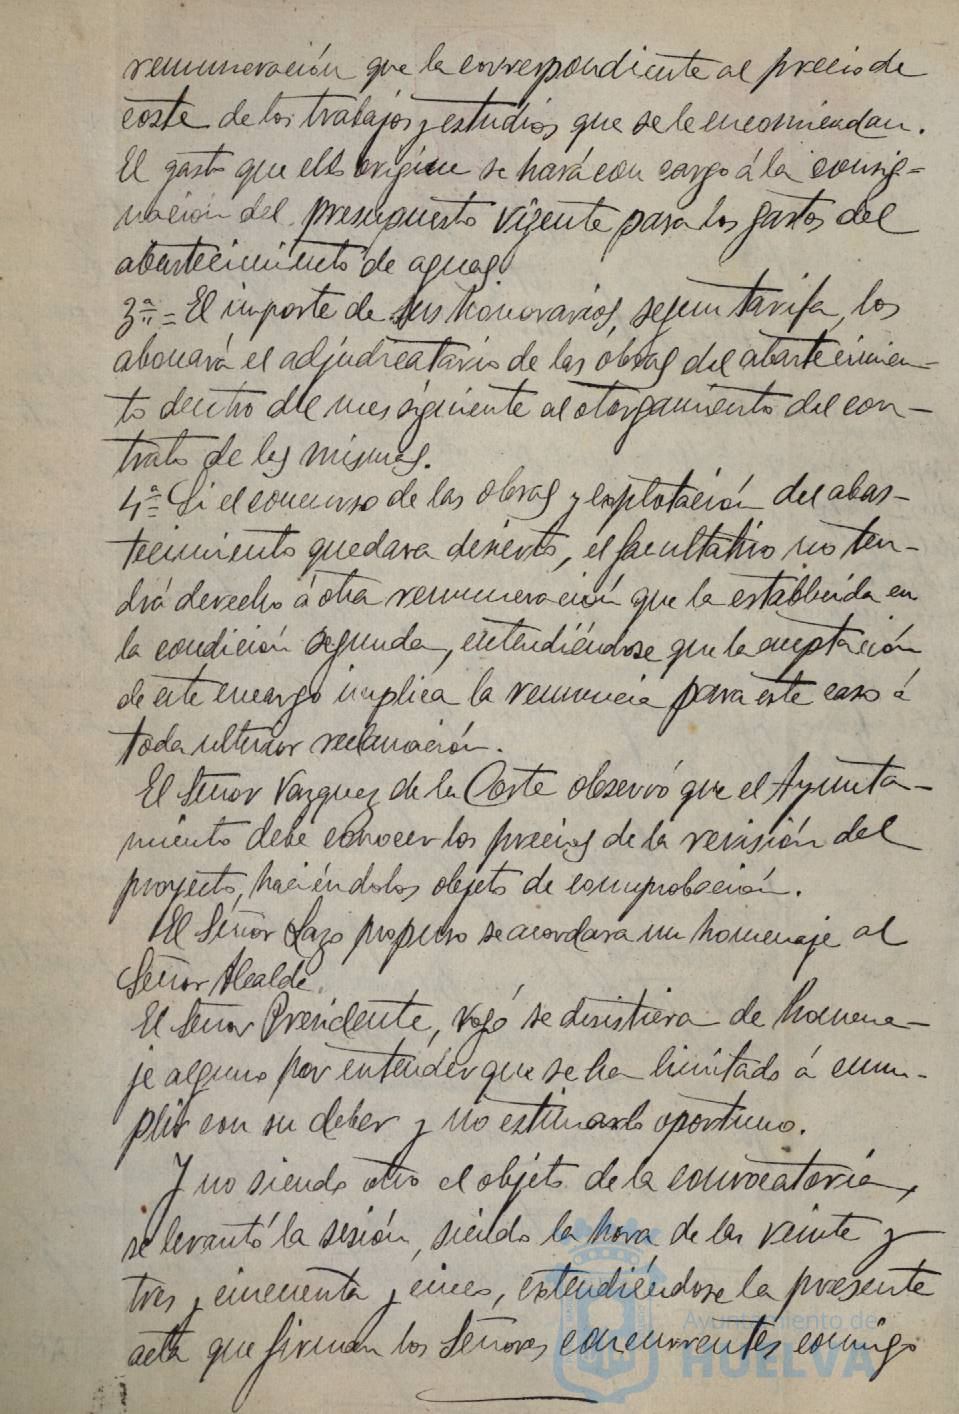 remuneración que la correspondiente al precio de
coste de los trabajos y estudios que se le encomiendan.
El gasto que ello origine se hará con cargo á la consig=
nación del presupuesto vigente para los gastos del
abastecimiento de aguas
3ª = El importe de sus honorarios, segun tarifa, los
abonará el adjudicatario de las obras del abastecimien-
to dentro del mes siguiente al otorgamiento del con-
trato de las mismas.
4ª Si el concurso de las obras y explotación del abas-
tecimiento quedara desierto, el facultativo no ten-
drá derecho á otra remuneración que la establecida en
la condición segunda, entendiéndose que la aceptación
de este encargo implica la renuncia para este caso á
toda ulterior reclamación.
El Señor Vazquez de la Corte observó que el Ayunta-
miento debe conocer los precios de la revisión del
proyecto, haciéndolos objeto de comprobación.
El Señor Lazo propuso se acordara un homenaje al
Señor Alcalde.
El Señor Presidente, rogó se desistiera de homena-
je alguno por entender que se ha limitado á cum-
plir con su deber y no estimarlo oportuno.
Y no siendo otro el objeto de la convocatoria,
se levantó la sesión, siendo la hora de las veinte y
tres y cincuenta y cinco, extendiéndose la presente
acta que firman los Señores concurrentes conmigo
Ayuntamiento de
HUELVA